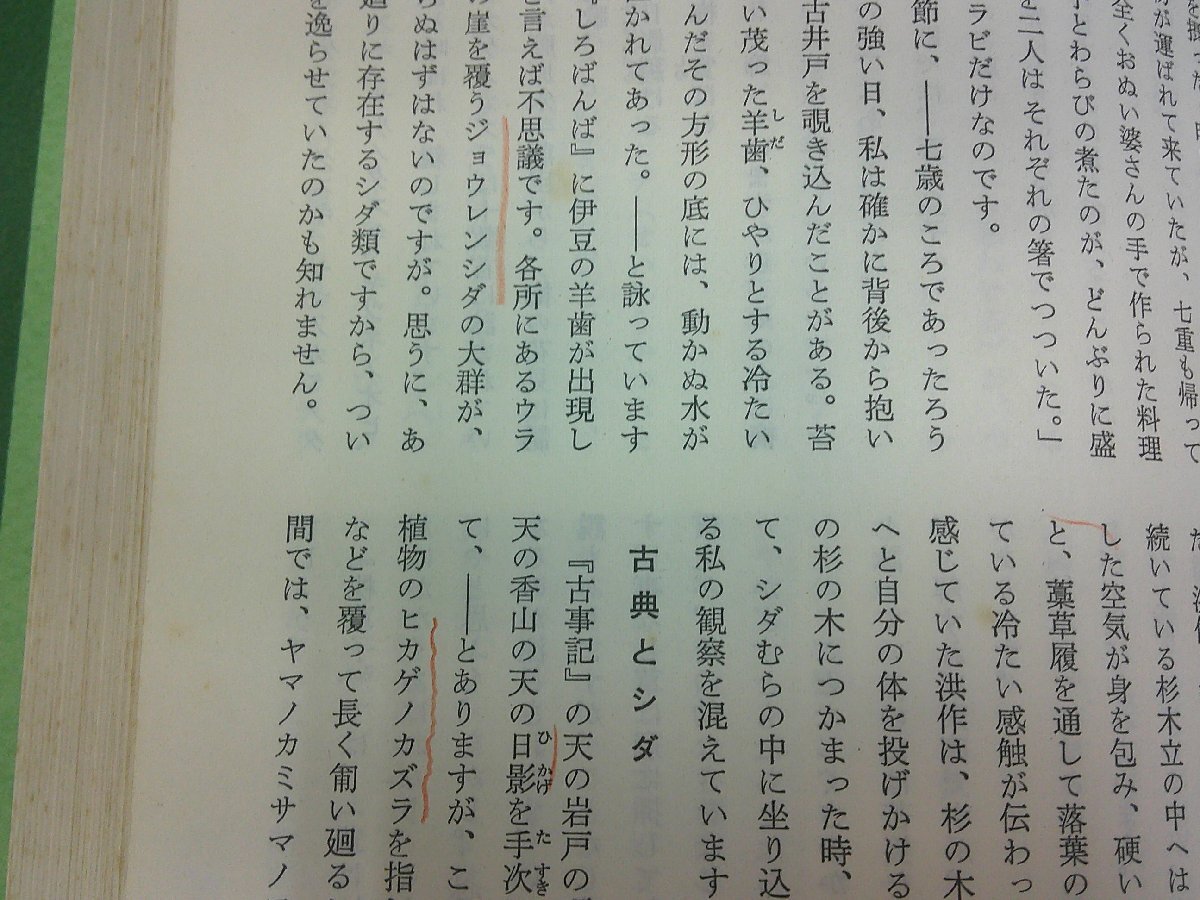 が運ばれて来ていたが、七重も帰って
全くおぬい婆さんの手で作られた料理
とわらびの煮たのが、どんぶりに盛
を二人はそれぞれの箸でつついた。」
ラビだけなのです。
節に、――七歳のころであったろう
の強い日、私は確かに背後から抱い
古井戸を覗き込んだことがある。苔
い茂った羊歯、ひやりとする冷たい
んだその方形の底には、動かぬ水が
かれてあった。――と詠っています
『しろばんば』に伊豆の羊歯が出現し
と言えば不思議です。各所にあるウラ
の崖を覆うジョウレンシダの大群が、
らぬはずはないのですが。思うに、あ
廻りに存在するシダ類ですから、つい
を逸らせていたのかも知れません。
続いている杉木立の中へは
した空気が身を包み、硬い
と、藁草履を通して落葉の
ている冷たい感触が伝わっ
感じていた洪作は、杉の木
へと自分の体を投げかける
の杉の木につかまった時、
て、シダむらの中に坐り込
る私の観察を混えています
古典とシダ
『古事記』の天の岩戸の
天の香山の天の日影を手次
て、――とありますが、こ
植物のヒカゲノカズラを指
などを覆って長く匍い廻る
間では、ヤマノカミサマノ